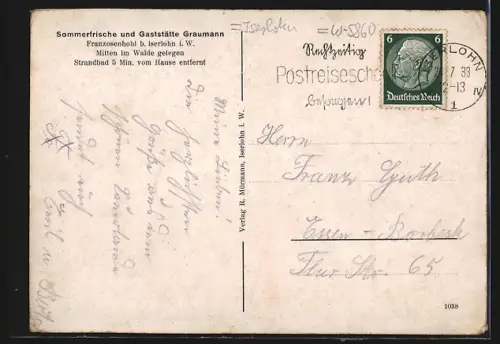 =Iserlohn =W-5860
Sommerfrische und Gaststätte Graumann
Franzosenhohl b. Iserlohn i. W.
Mitten im Walde gelegen
Strandbad 5 Min. vom Hause entfernt
Rechtzeitig
Postreisesche
besorgen!
6 6
Deutsches Reich
ERLOHN
7 33
-13
IV
1
Meine Lieben!
Die herzlichsten
Grüße aus dem
schönen Sauerlande
sendet euch
Verlag R. Mürmann, Iserlohn i. W.
Herrn
Franz Guth
Essen - Borbeck
Flur Str. 65
1038